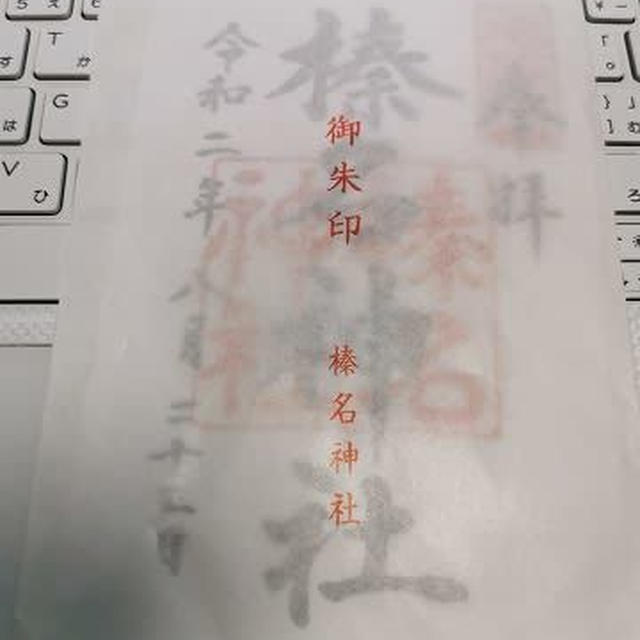 奉拝
榛名神社
御朱印 榛名神社
令和二年八月二十二日
T
G
V
ひ
は
か